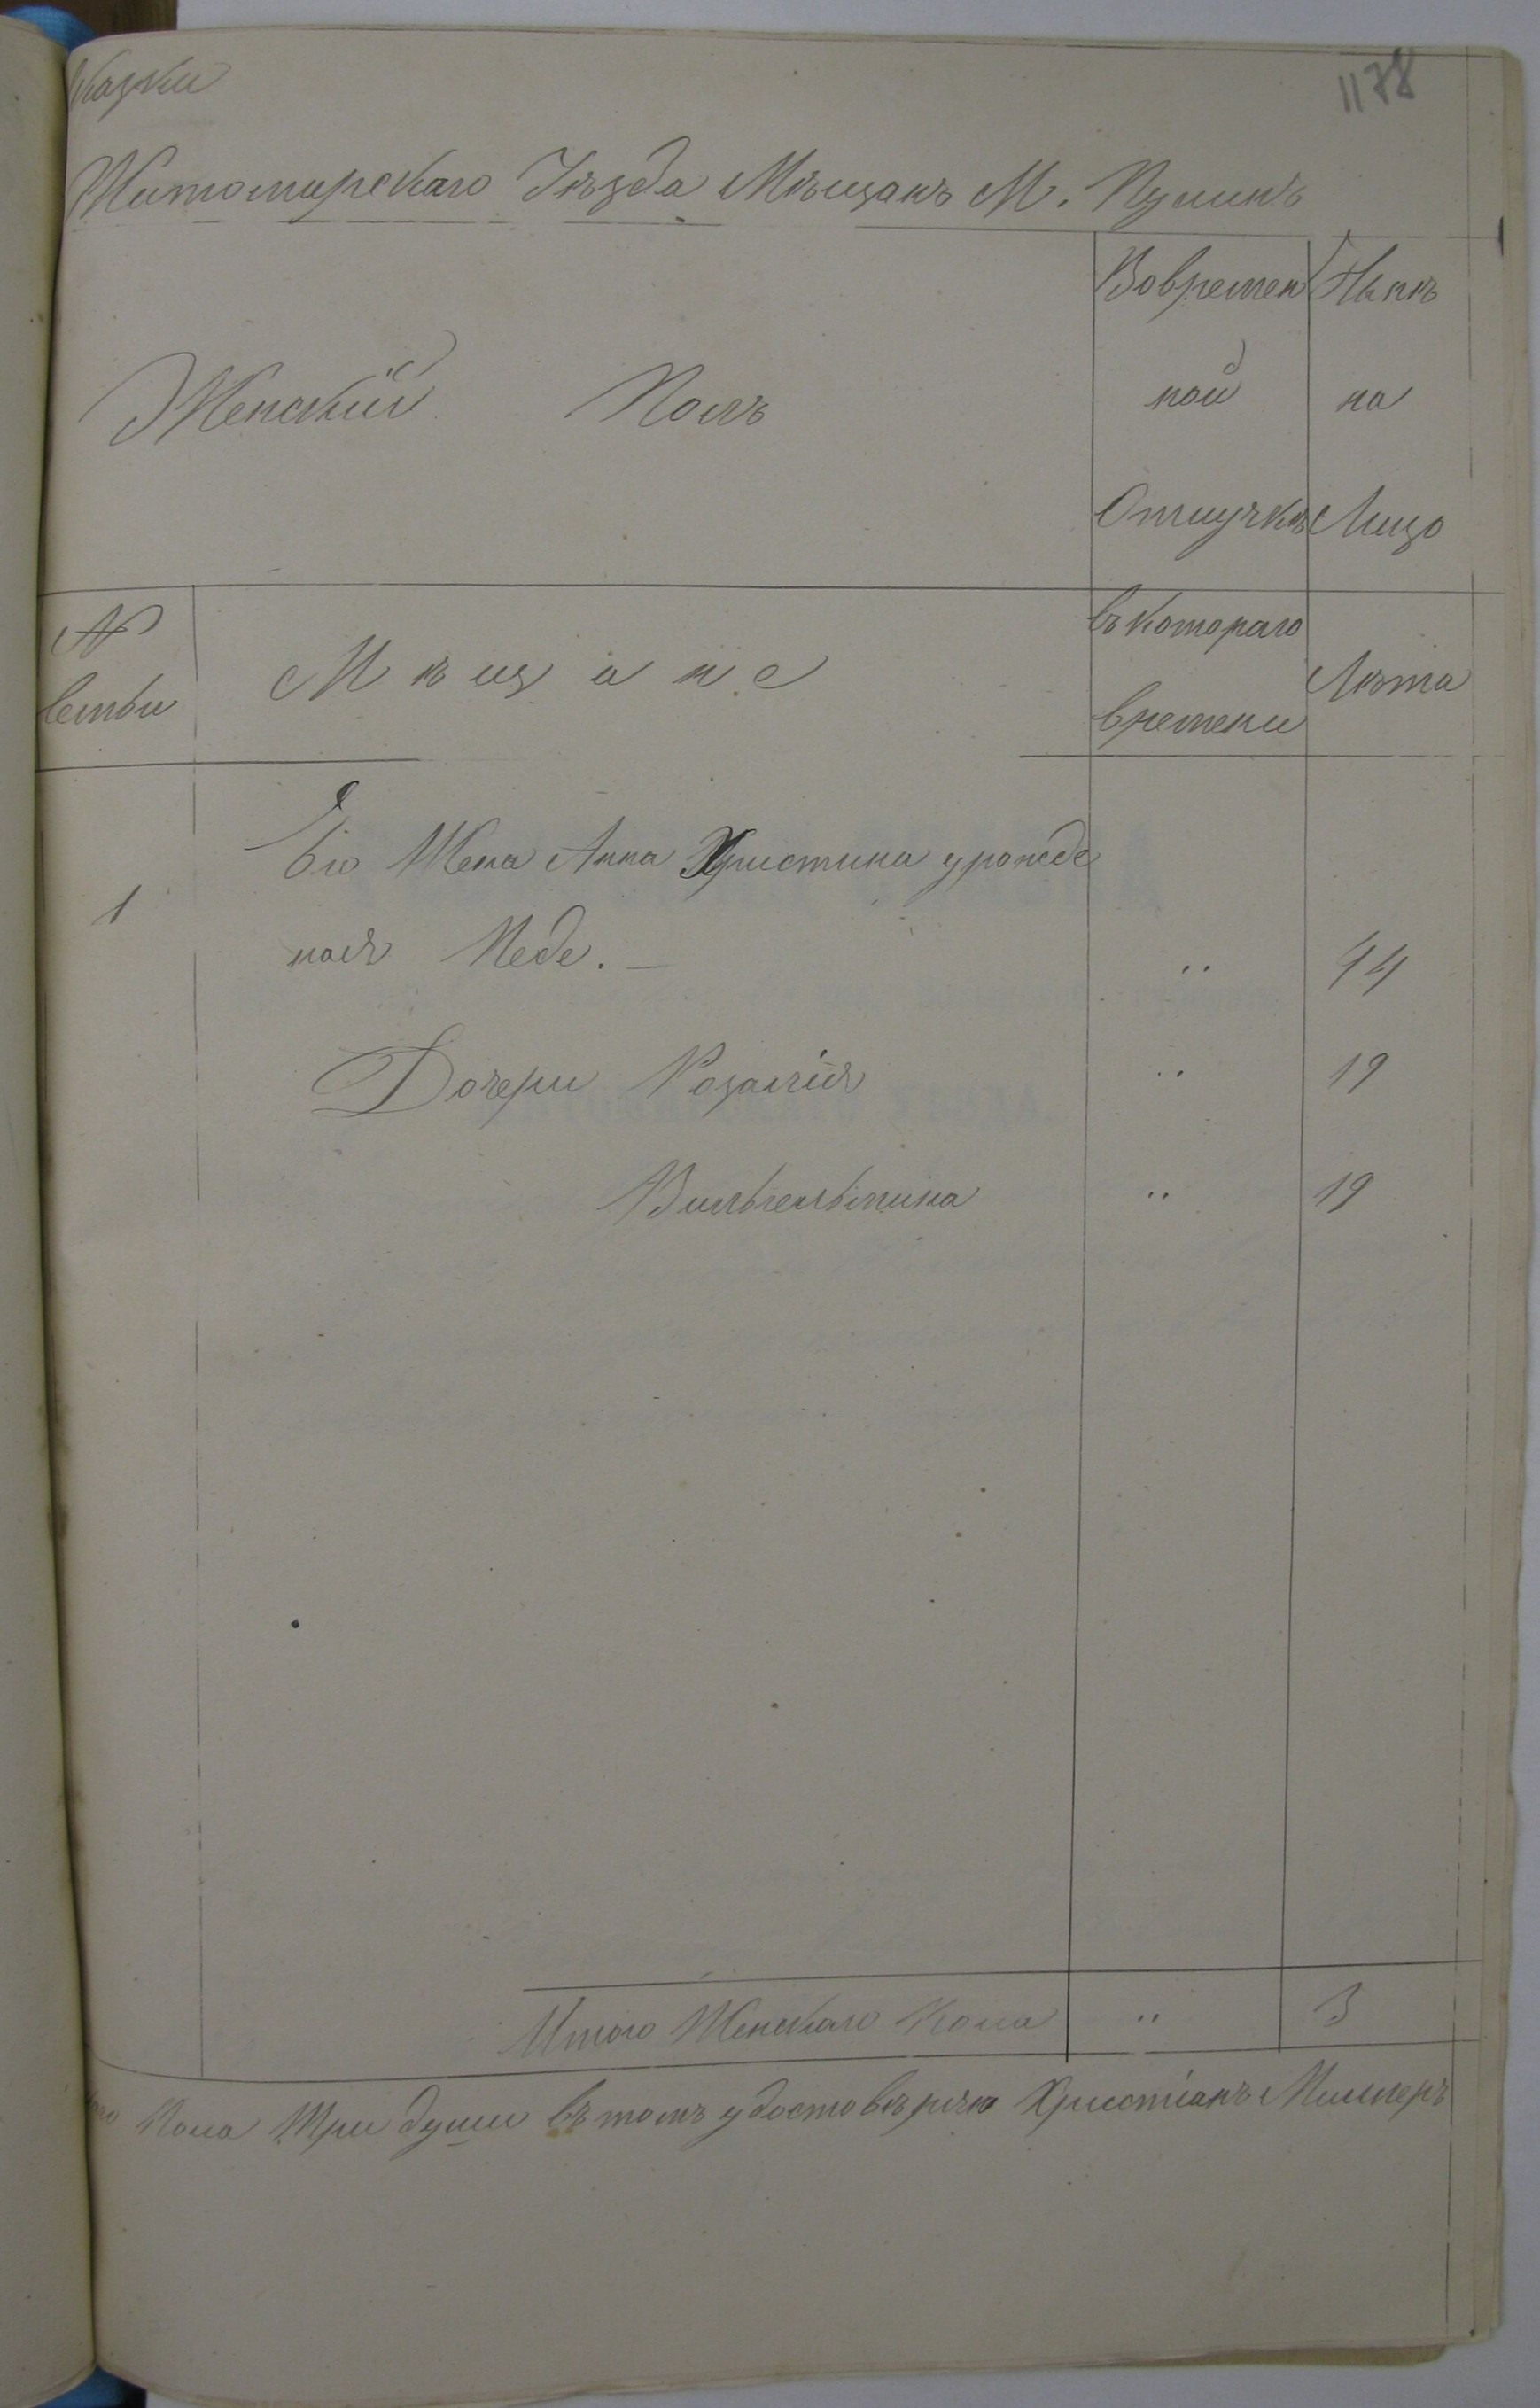 сказки
1178
Житомирскаго Уѣзда Мѣщанъ М. Пулинъ
Женскій Полъ
Вовремен
ной
Отлучкѣ
Нынѣ
на
Лицо
№
семьи
Мѣщане
съ котораго
времени
Лѣта
1
Его Жена Анна Христина урожде
ная Меде. — " 44
Дочери Розалія " 19
Вильгельмина " 19
Итого Женскаго Пола " 3
Пола Три души въ томъ удостовѣряю Христіанъ Миллеръ